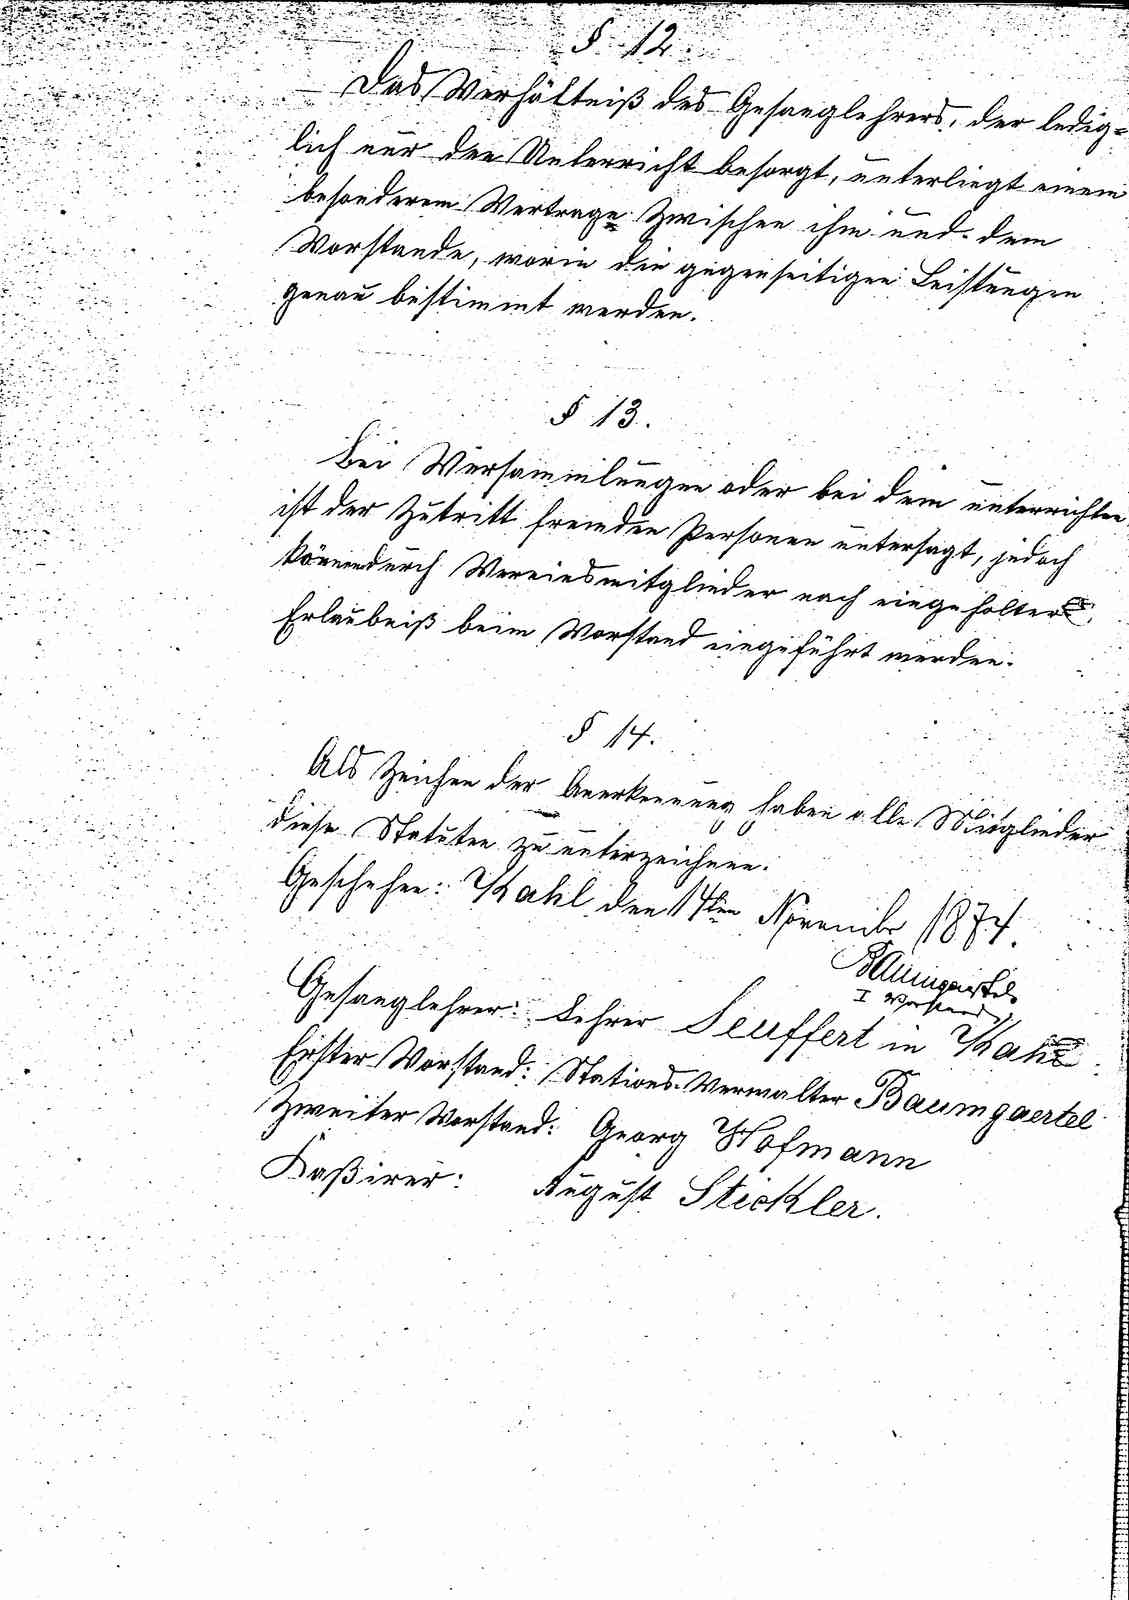 § 12.
Das Verhältniß des Gesanglehrers, der ledig-
lich nur den Unterricht besorgt, unterliegt einem
besonderem Vertrage zwischen ihm und dem
Vorstande, worin die gegenseitigen Leistungen
genau bestimmt werden.
§ 13.
Bei Versammlungen oder bei dem unterrichten
ist der Zutritt fremden Personen untersagt, jedoch
können durch Vereinsmitglieder nach eingeholter
Erlaubniß beim Vorstand eingeführt werden.
§ 14.
Als Zeichen der Anerkennung haben alle Mitglieder
diese Statuten zu unterzeichnen.
Geschehen: Kahl den 14ten November 1874.
Baumgaertel
I Vorstand
Gesanglehrer: Lehrer Seuffert in Kahl.
Erster Vorstand: Stations-Verwalter Baumgaertel
Zweiter Vorstand: Georg Hofmann
Kaßirer: August Stickler.